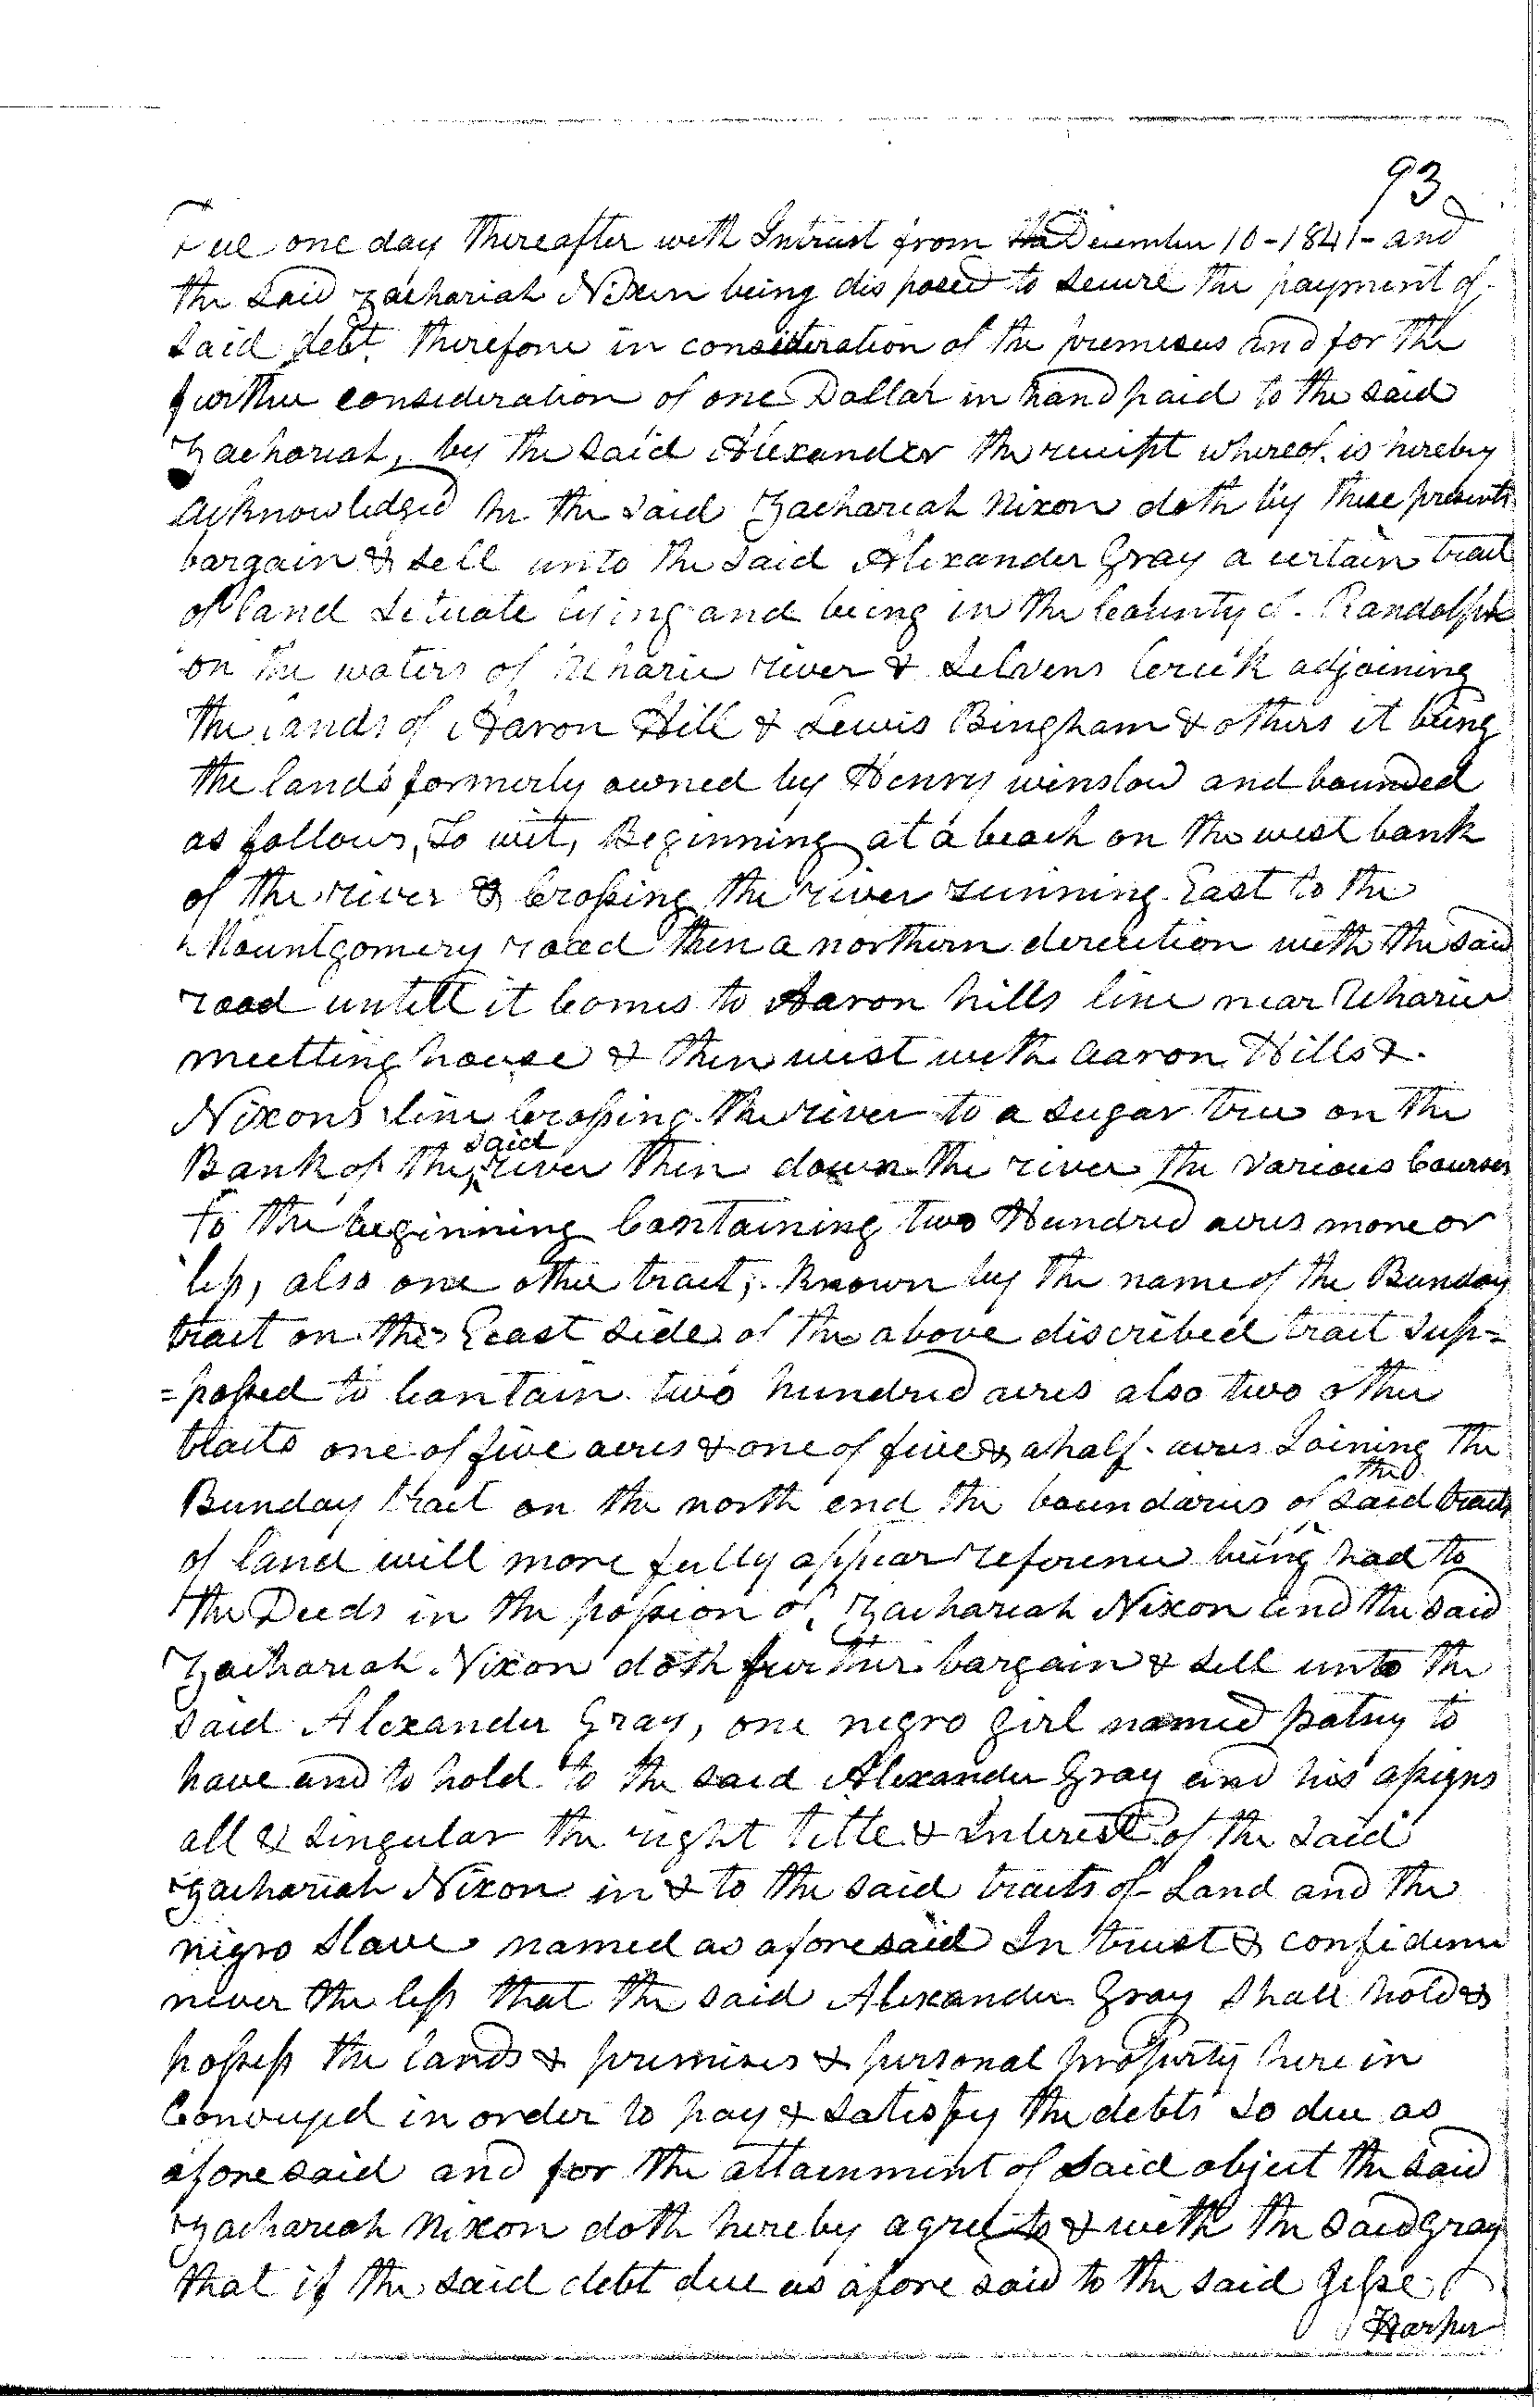 93
Due one day thereafter with Intrust from the December 10 - 1841 - and
the said Zachariah Nixon being disposed to secure the payment of
said debt therefone in consideration of the premeses and for the
further consideration of one Dollar in hand paid to the said
Zachariah, by the said Alexander the receipt whereof is hereby
acknowledged he the said Zachariah Nixon doth by these presents
bargain & sell unto the said Alexander Gray a certain tract
of land situate lying and being in the County of Randolph
on the waters of Uharie river & Silvers Creek adjoining
the lands of Aaron Hill & Lewis Bingham & others it being
the lands formerly owned by Henry winslow and bounded
as follows, To wit, Beginning at a beach on the west bank
of the river & Crossing the river running East to the
Mountgomery road then a northern derection with the said
road untill it Comes to Aaron hills line near Uharie
meetting house & then west with Aaron Hills &
Nixons line Crossing the river to a sugar tree on the
Bank of the said river then down the river the various Courses
To the beginning Containing two Hundred acres more or
less, also one other tract, known by the name of the Bunday
tract on the East side of the above discribed tract sup=
=possed to Contain two hundred acres also two other
tracts one of five acres & one of five & a half acres Joining the
Bunday tract on the north end the boundaries of the said tracts
of land will more fully appear reference being had to
the Deeds in the possion of Zachariah Nixon and the said
Zachariah Nixon doth further bargain & sell unto the
said Alexander Gray, one negro girl named patsey to
have and to hold to the said Alexander Gray and his assigns
all & singular the right title & Interest of the said
Zachariah Nixon in & to the said tracts of Land and the
negro slave named as aforesaid In trust & confidence
never the less that the said Alexander Gray shall hold &
possess the lands & premises & personal property here in
Conveyed in order to pay & satisfy the debts so due as
afore said and for the attainment of said object the said
Zachariah Nixon doth hereby agree to & with the said Gray
that if the said debt due as afore said to the said Jesse
Harper